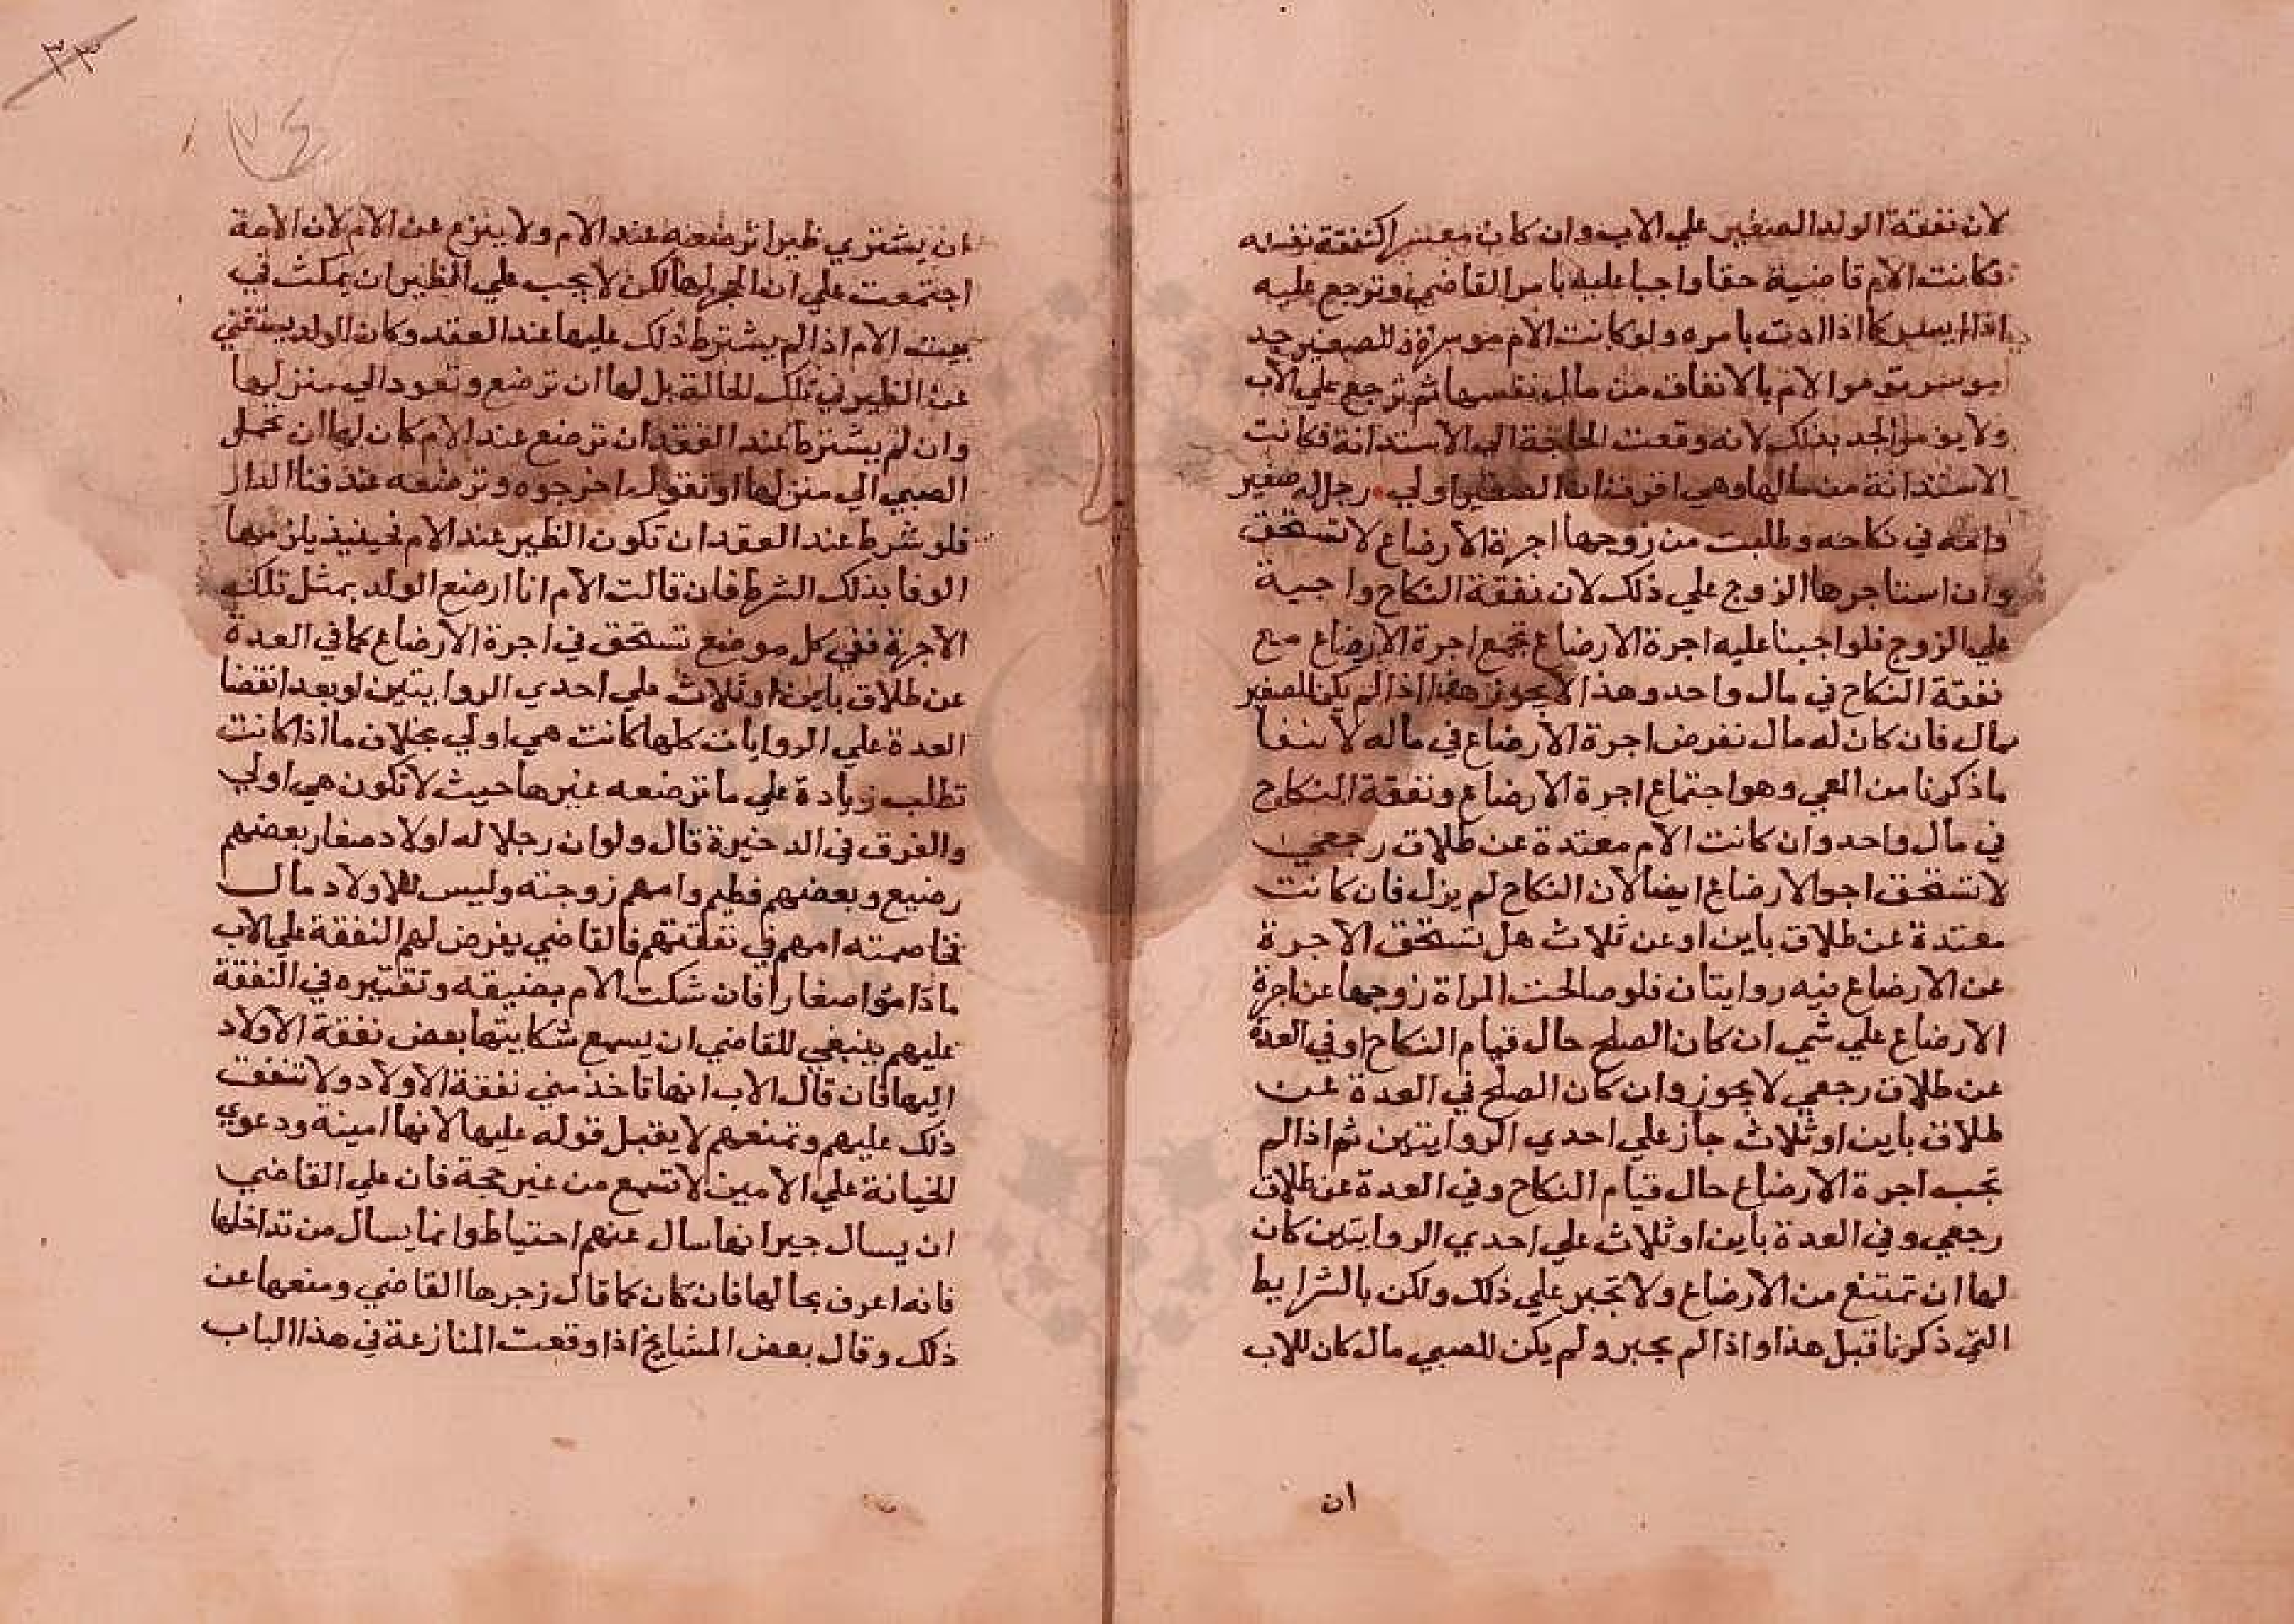 لان نفقة الولد الصغير علي الاب وان كان معسرا كنفقة نفسه
فكانت الام قاضية حقا واجبا عليه بامر القاضي وترجع عليه
اذا ايسر كما اذا ادت بامره ولو كانت الام موسرة وللصغير جد
موسر تومر الام بالانفاق من مال نفسها ثم ترجع علي الاب
ولا يومر الجد بذلك لانه وقعت الحاجة الي الاستدانة فكانت
الاستدانة من مالها وهي اقرب الي الصغير اولي رجل له صغير
وامه في نكاحه وطلبت من زوجها اجرة الارضاع لا تستحق
وان استاجرها الزوج علي ذلك لان نفقة النكاح واجبة
علي الزوج فلو اوجبنا عليه اجرة الارضاع تجمع اجرة الارضاع مع
نفقة النكاح في مال واحد وهذا لا يجوز هذا اذا لم يكن للصغير
مال فان كان له مال نفرض اجرة الارضاع في ماله لانتفا
ما ذكرنا من المعي وهو اجتماع اجرة الارضاع ونفقة النكاح
في مال واحد وان كانت الام معتدة عن طلاق رجعي
لا تستحق اجر الارضاع ايضا لان النكاح لم يزل فان كانت
معتدة عن طلاق باين او عن ثلاث هل تستحق الاجرة
عن الارضاع فيه روايتان فلو صالحت المراة زوجها عن اجرة
الارضاع علي شي ان كان الصلح حال قيام النكاح او في العدة
عن طلاق رجعي لا يجوز وان كان الصلح في العدة عن
طلاق باين او ثلاث جاز علي احدي الروايتين ثم اذا لم
تجب اجرة الارضاع حال قيام النكاح وفي العدة عن طلاق
رجعي وفي العدة باين او ثلاث علي احدي الروايتين كان
لها ان تمتنع من الارضاع ولا تجبر علي ذلك ولكن بالشرايط
التي ذكرنا قبل هذا واذا لم يجبر ولم يكن للصبي مال كان للاب
ان
٣٣
ان يشتري ظيرا ترضعه عند الام ولا ينزع عن الام لان الامة
اجتمعت علي ان الحجر لها لكن لا يجب علي الظير ان يمكث في
بيت الام اذا لم يشترط ذلك عليها عند العقد وكان الولد يستغني
عن الظير في تلك الحالة بل لها ان ترضع وتعود الي منزلها
وان لم يشترط عند العقد ان ترضع عند الام كان لها ان تحمل
الصبي الي منزلها او تقول اخرجوه وترضعه عند فنا الدار
فلو شرط عند العقد ان تكون الظير عند الام فحينيذ يلزمها
الوفا بذلك الشرط فان قالت الام انا ارضع الولد بمثل تلك
الاجرة ففي كل موضع تستحق في اجرة الارضاع كما في العدة
عن طلاق باين او ثلاث علي احدي الروايتين او بعد انقضا
العدة علي الروايات كلها كانت هي اولي بخلاف ما اذا كانت
تطلب زيادة علي ما ترضعه غيرها حيث لا تكون هي اولي
والفرق في الدخيرة قال ولو ان رجلا له اولاد صغار بعضهم
رضيع وبعضهم فطيم وامهم زوجته وليس للاولاد مال
فخاصمته امهم في نفقتهم فالقاضي يفرض لهم النفقة علي الاب
ماداموا صغارا فان شكت الام بضيقه وتقتيره في النفقة
عليهم ينبغي للقاضي ان يسمع شكايتها بعض نفقة الاولاد
اليها فان قال الاب انها تاخذ مني نفقة الاولاد ولا تنفق
ذلك عليهم وتمنعهم لا يقبل قوله عليها لانها امينة ودعوي
الخيانة علي الامين لا تسمع من غير حجة فان علي القاضي
ان يسال جيرانها سال عنهم احتياطا وانما يسال من تداخلها
فانه اعرف بحالها فان كان كما قال زجرها القاضي ومنعها عن
ذلك وقال بعض المشايخ اذا وقعت المنازعة في هذا الباب